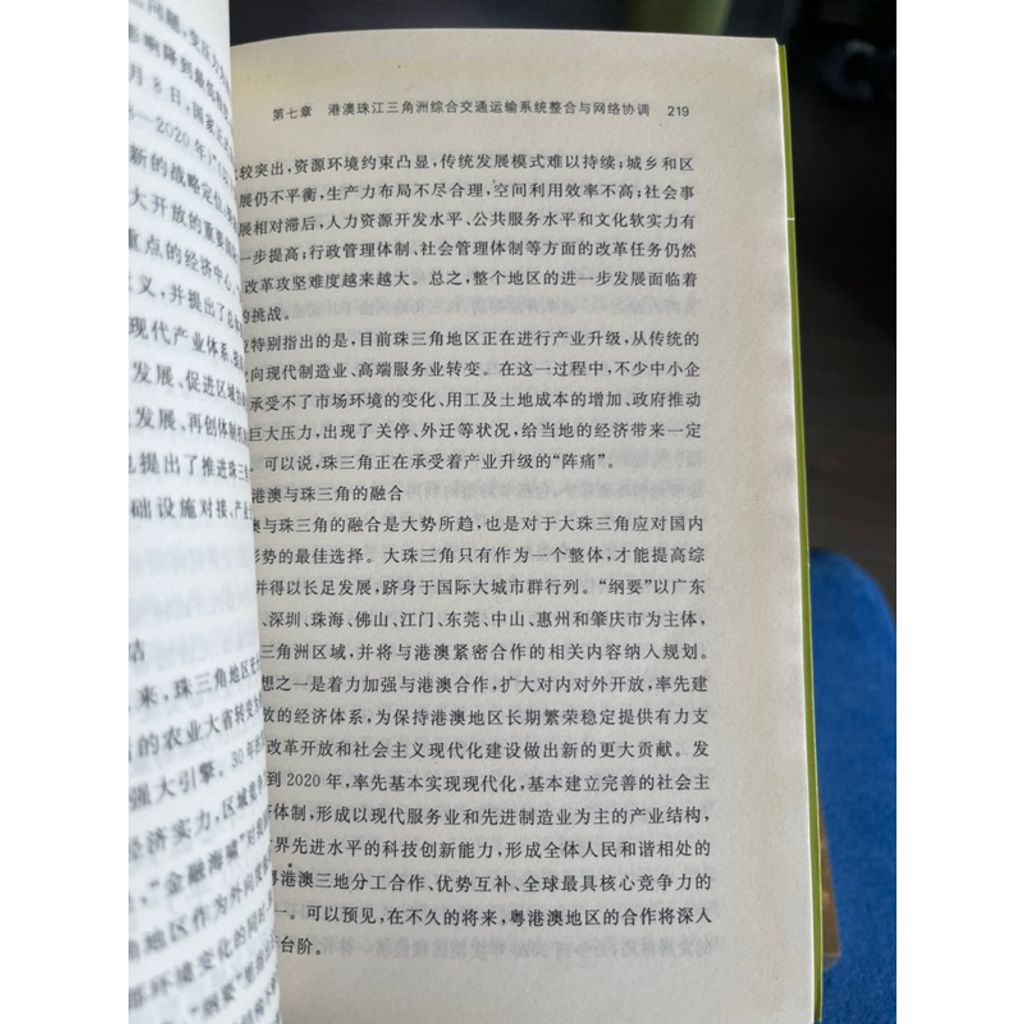 问题,变压力为
影响降到最低程度
月8日,国家正式
—2020年)"
新的战略定位
大开放的重要国
重点的经济中心
义,并提出了总
现代产业体系、
发展、促进区域
发展、再创体制
提出了推进珠三角
础设施对接、产业
结
来,珠三角地区
的农业大省转变为
强大引擎。30年
经济实力,区域竞争
,"金融海啸"对
角地区作为外向
环境变化的同时
"纲要"
第七章 港澳珠江三角洲综合交通运输系统整合与网络协调 219
较突出,资源环境约束凸显,传统发展模式难以持续;城乡和区
展仍不平衡,生产力布局不尽合理,空间利用效率不高;社会事
展相对滞后,人力资源开发水平、公共服务水平和文化软实力有
一步提高;行政管理体制、社会管理体制等方面的改革任务仍然
改革攻坚难度越来越大。总之,整个地区的进一步发展面临着
的挑战。
特别指出的是,目前珠三角地区正在进行产业升级,从传统的
向现代制造业、高端服务业转变。在这一过程中,不少中小企
承受不了市场环境的变化、用工及土地成本的增加、政府推动
巨大压力,出现了关停、外迁等状况,给当地的经济带来一定
。可以说,珠三角正在承受着产业升级的“阵痛”。
港澳与珠三角的融合
澳与珠三角的融合是大势所趋,也是对于大珠三角应对国内
形势的最佳选择。大珠三角只有作为一个整体,才能提高综
并得以长足发展,跻身于国际大城市群行列。“纲要”以广东
、深圳、珠海、佛山、江门、东莞、中山、惠州和肇庆市为主体,
三角洲区域,并将与港澳紧密合作的相关内容纳入规划。
想之一是着力加强与港澳合作,扩大对内对外开放,率先建
放的经济体系,为保持港澳地区长期繁荣稳定提供有力支
改革开放和社会主义现代化建设做出新的更大贡献。发
到2020年,率先基本实现现代化,基本建立完善的社会主
体制,形成以现代服务业和先进制造业为主的产业结构,
界先进水平的科技创新能力,形成全体人民和谐相处的
粤港澳三地分工合作、优势互补、全球最具核心竞争力的
一。可以预见,在不久的将来,粤港澳地区的合作将深入
台阶。